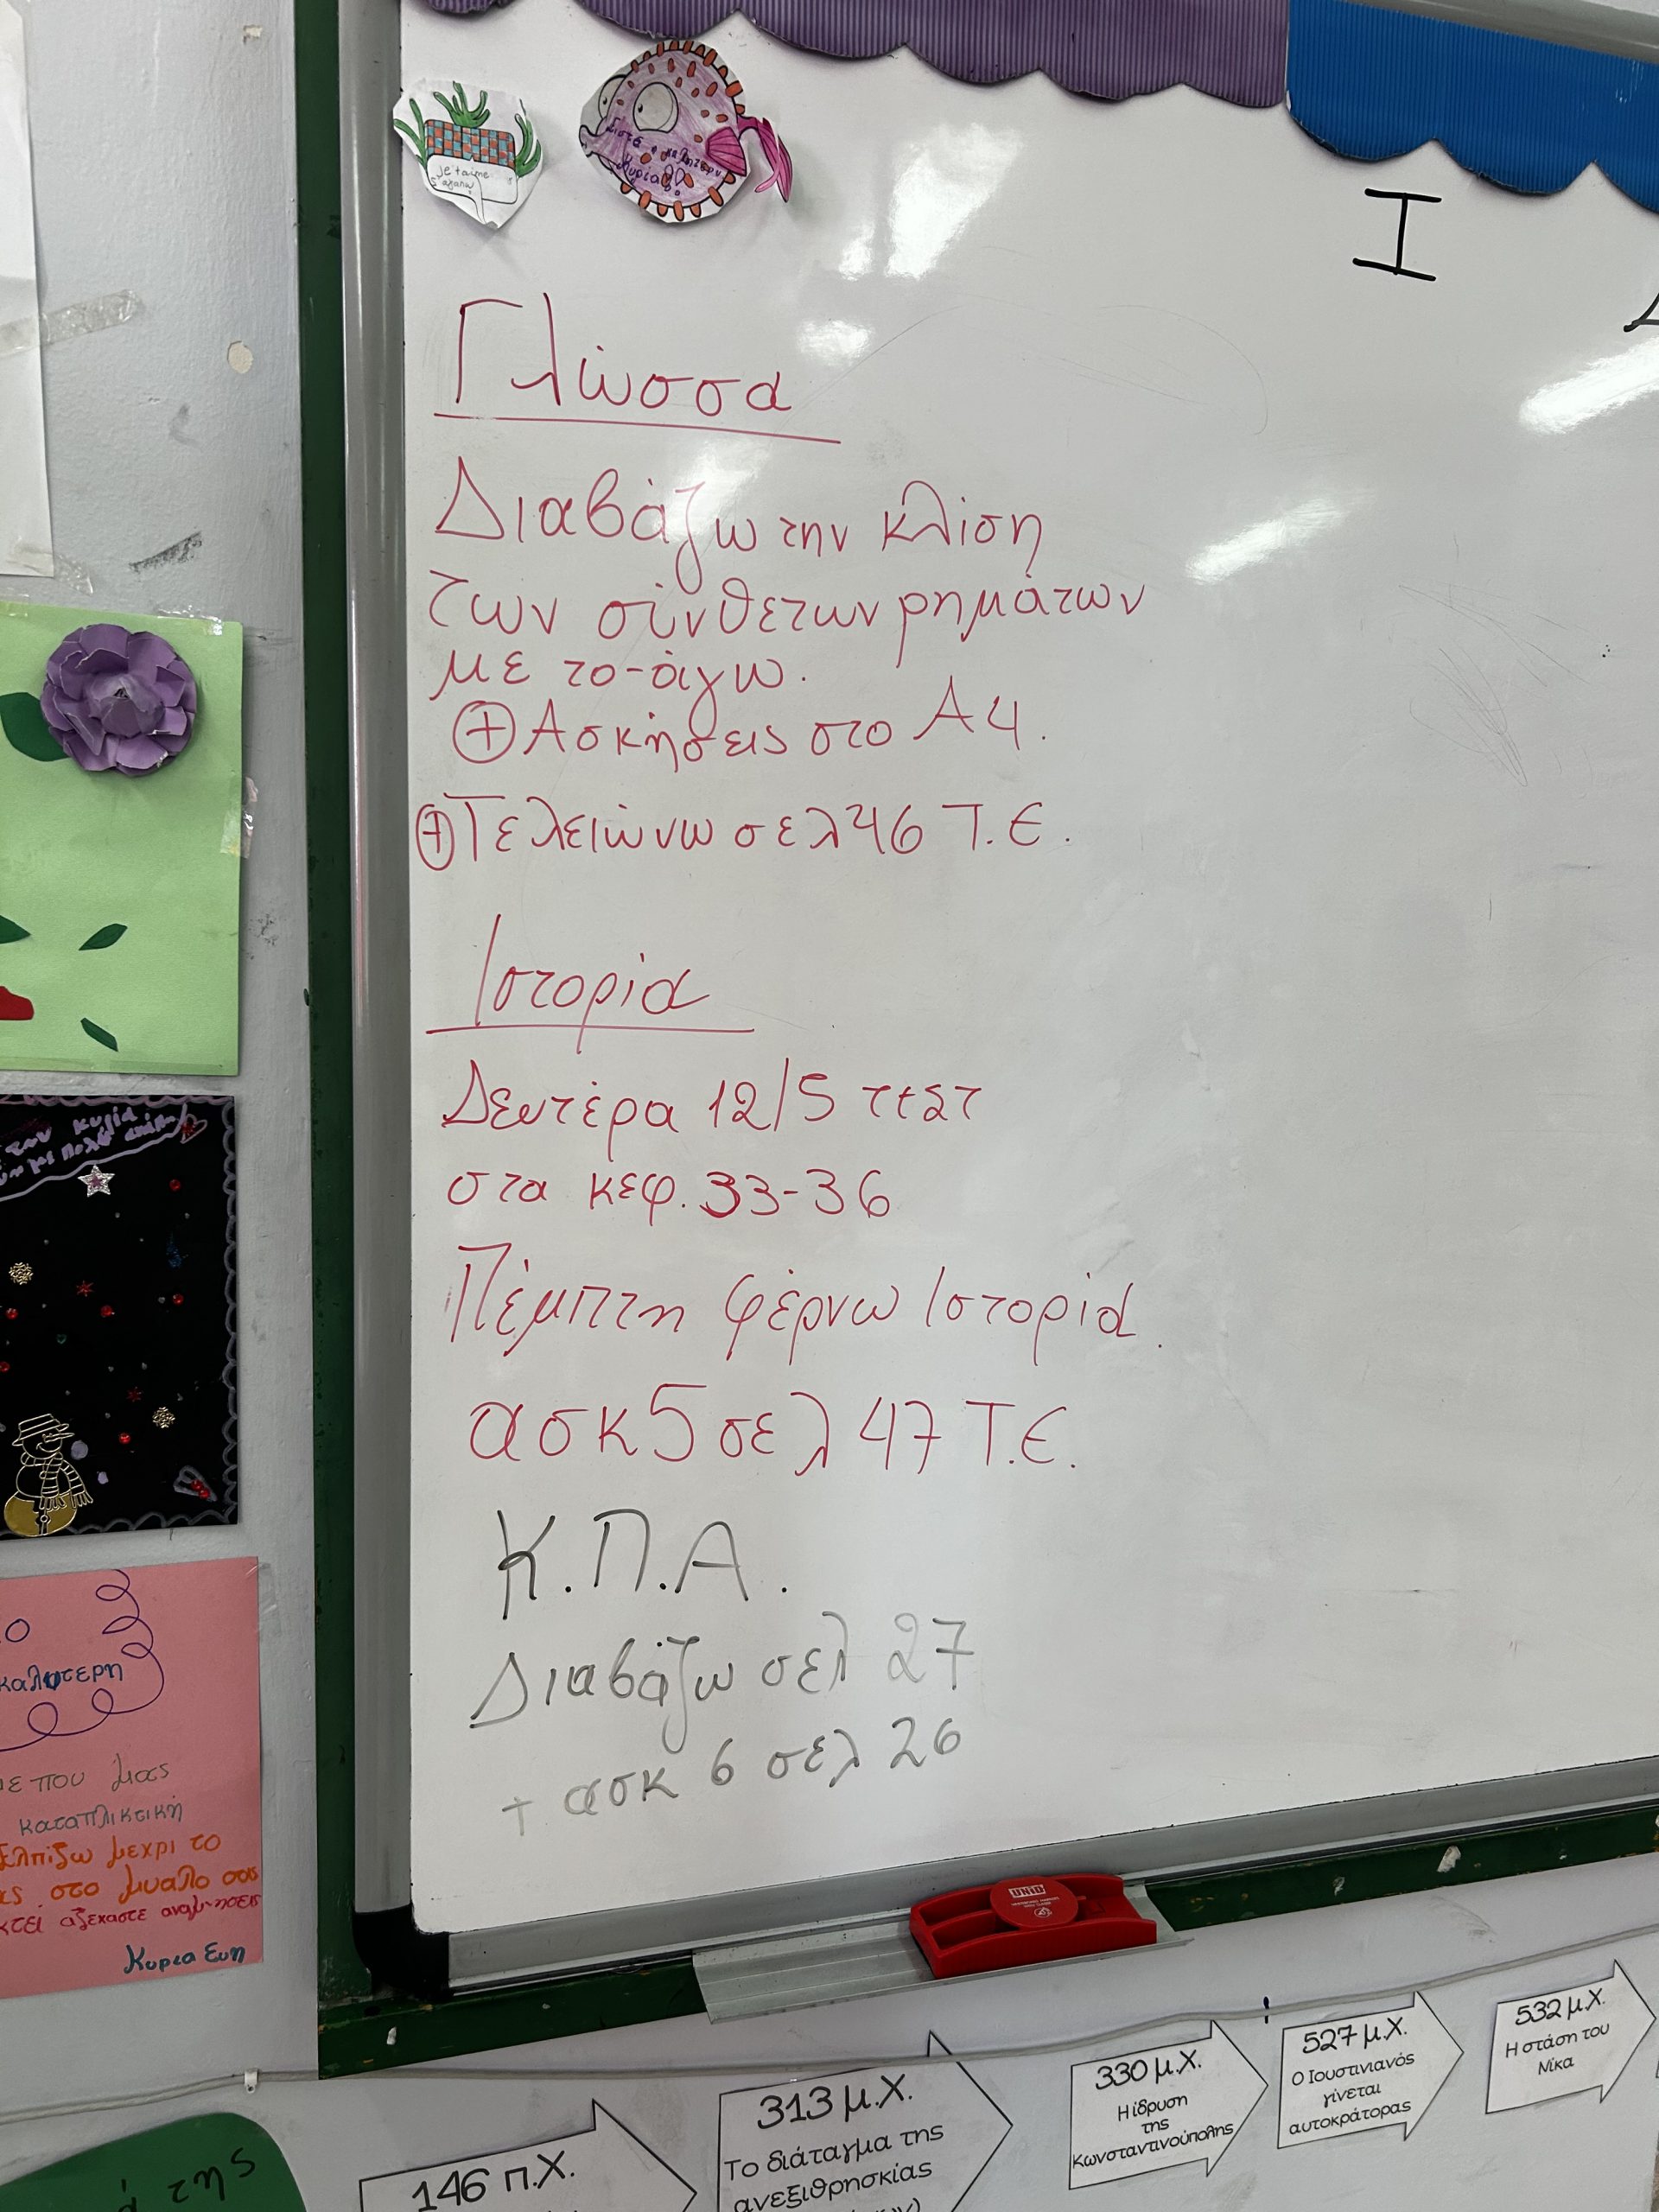 Je t'aime
Σ'αγαπώ
Είστε η καλύτερη
Κυρία!
I
Γλώσσα
Διαβάζω την κλίση
των σύνθετων ρημάτων
με το -άγω.
+ Ασκήσεις στο Α4.
+ Τελειώνω σελ 46 Τ.Ε.
Ιστορία
Δευτέρα 12/5 τεστ
στα κεφ. 33-36
Πέμπτη φέρνω Ιστορία.
ασκ 5 σελ 47 Τ.Ε.
Κ.Π.Α.
Διαβάζω σελ 27
+ ασκ 6 σελ 26
κυρία
με πολύ αγάπη
καλυτερη
που μας
καταπλικτική
Ελπίζω μεχρι το
στο μυαλο σας
αξεχαστε αναμνησεις
Κυρια Ευη
της
146 π.Χ.
313 μ.Χ.
Το διάταγμα της
ανεξιθρησκίας
330 μ.Χ.
Η ίδρυση
της
Κωνσταντινούπολης
527 μ.Χ.
Ο Ιουστινιανός
γίνεται
αυτοκράτορας
532 μ.Χ.
Η στάση του
Νίκα